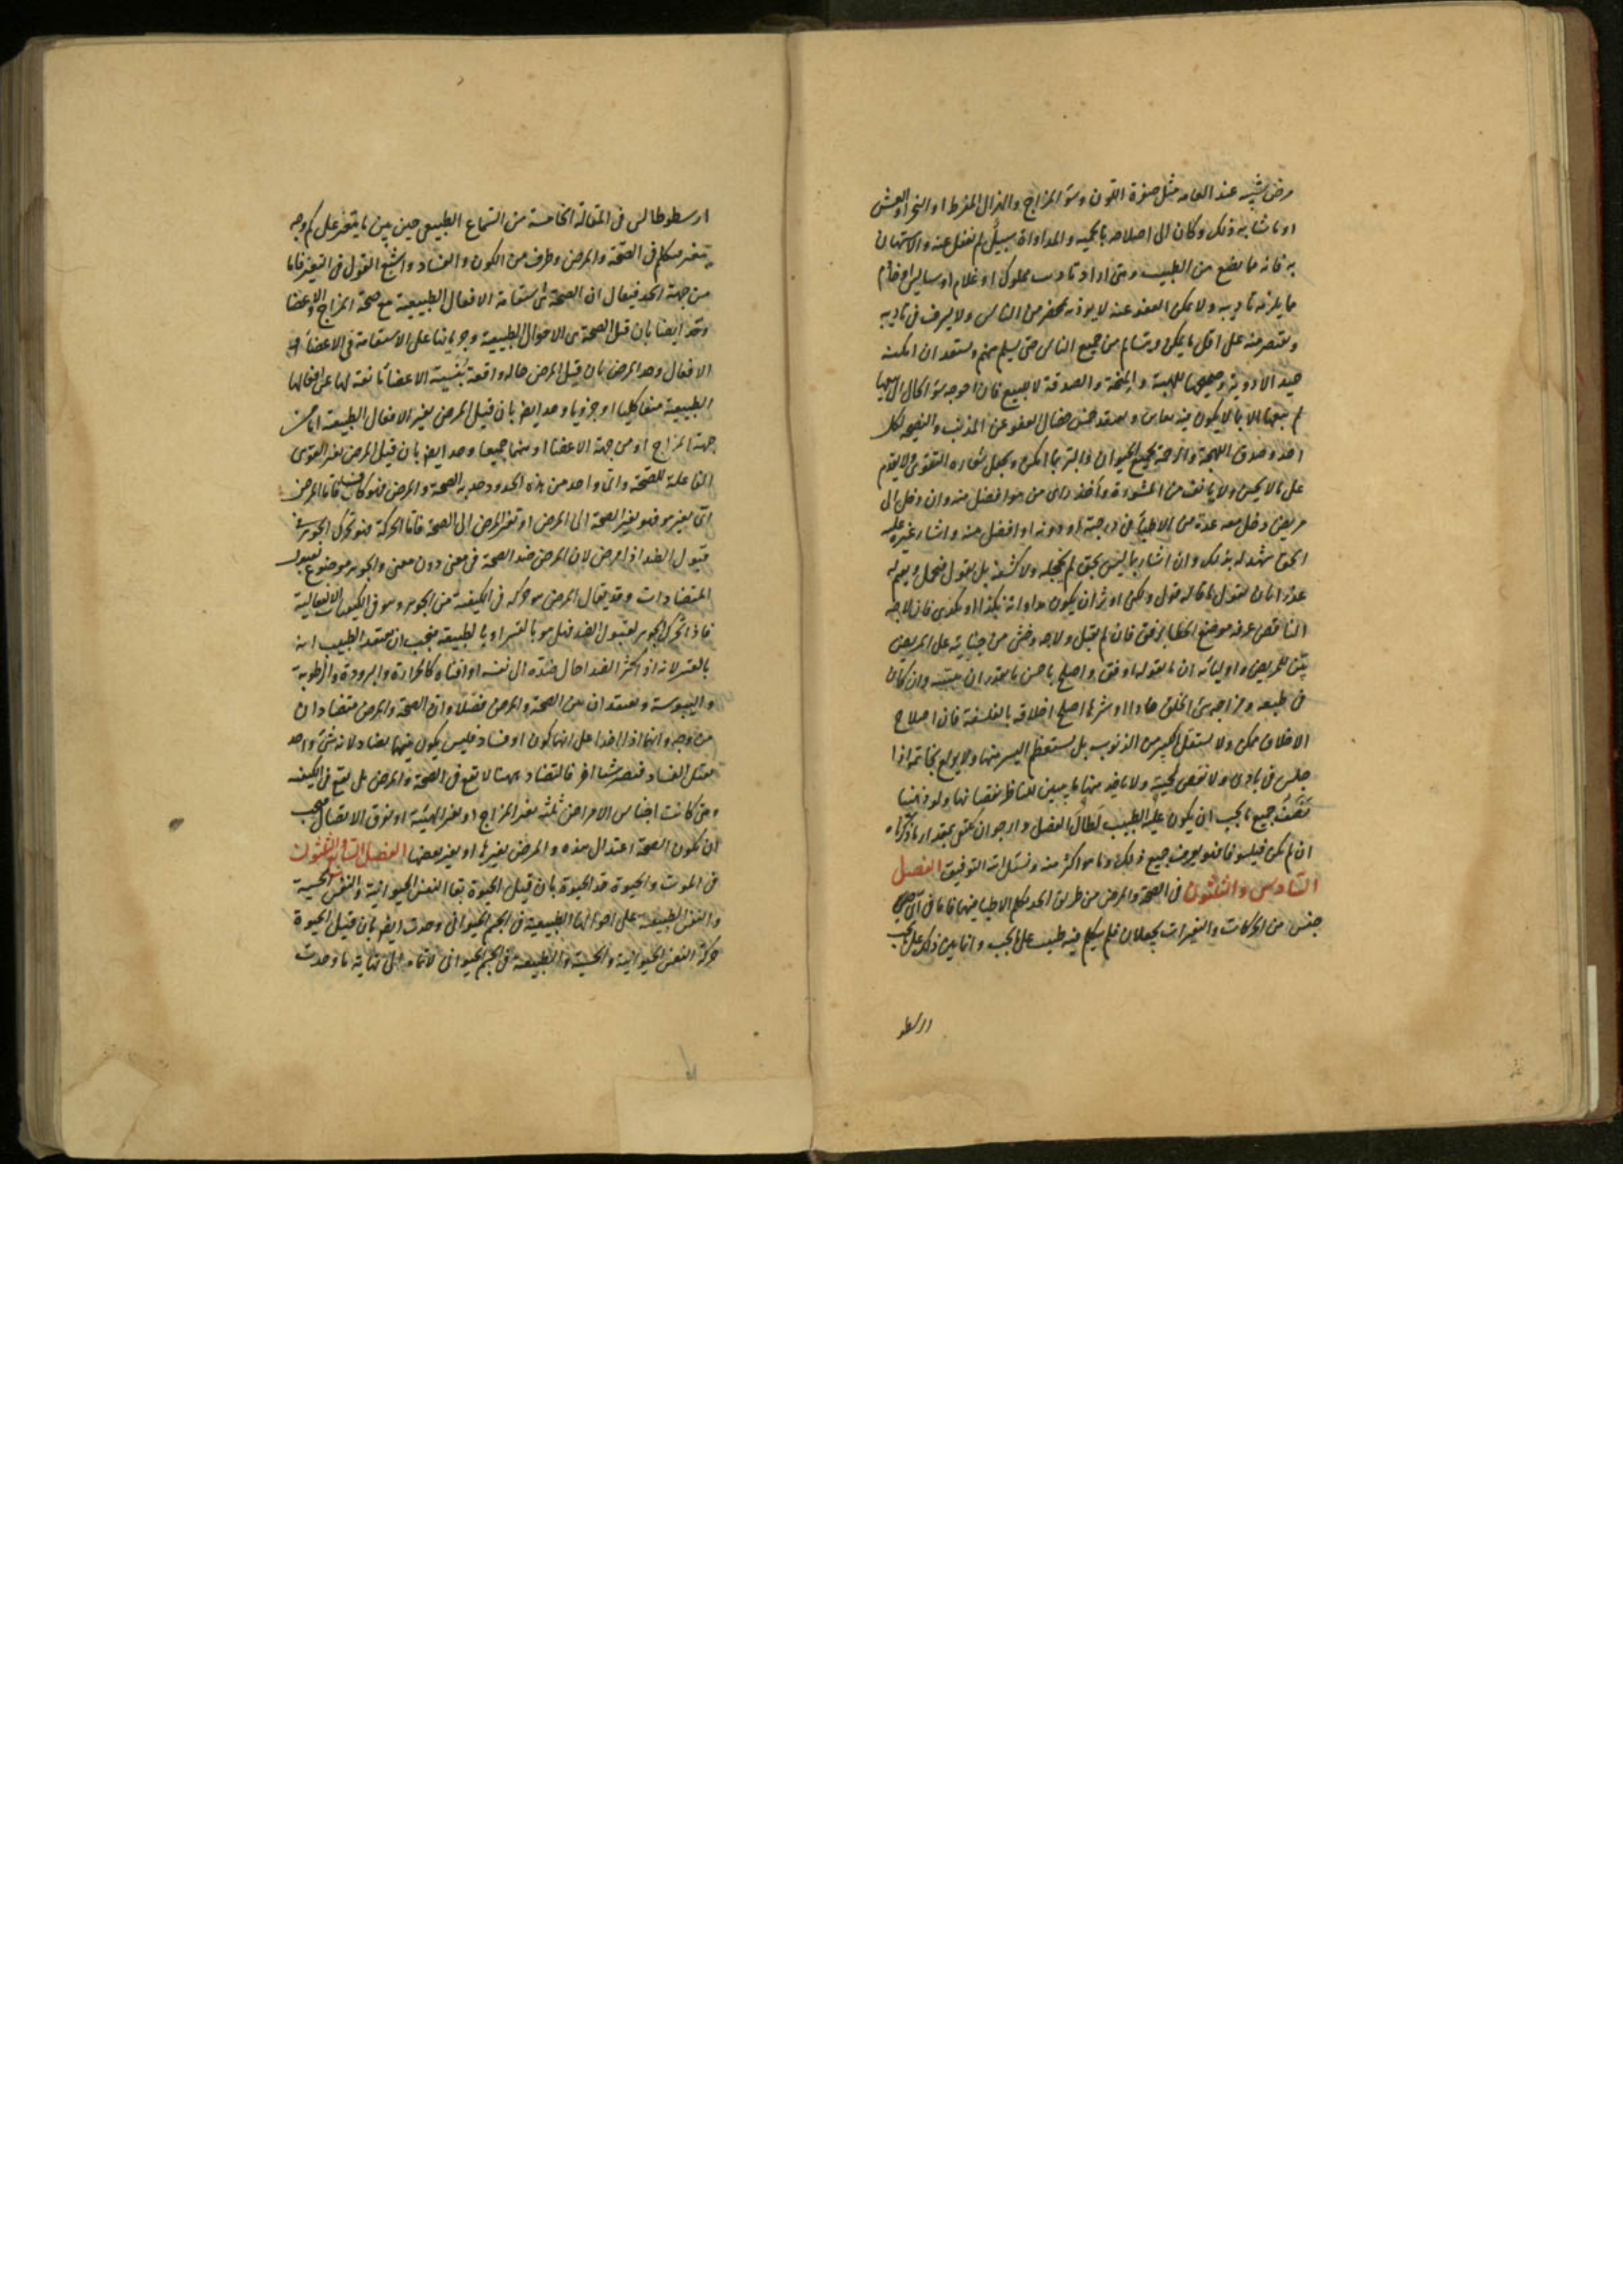 مرض يشير عند العامه مثل صفرة اللون وسؤ المزاج والهزال المفرط او البخر او العمش
او ما شابه ذلك وكان الى اصلاحه بالحميه والمداواة سبيل لم يغفل عنه والاستهان
به فانه ما يضع من الطبيب ومتى اراد تاديب مملوك او غلام او
ما يلزمه تاديبه ولا يمكن العفو عنه لا يوذيه بمحضر من الناس ولا يسرف في تاديبه
ويقتصر منه على اقل ما يمكن ويتسالم من جميع الناس حتى يسلم منهم ويستعد ان امكنه
جيد الادوية للهيبة والمنحة والصدقة لا للبيع فان احوجه سؤ الحال الى بيعها
لم يبعها الا بما لا يكون فيه ويعتقد حسن خصال العفو عن المذنب والنصيحه لكل
احد وصدق اللهجة والرحمة لجميع الحيوان والبر بما امكن ويجعل شعاره التقوى ولا يقدم
على ما لا يحسن ولا يانف من المشورة وأخذ راى من هو افضل منه وان دخل الى
مريض دخل معه عدة من الاطباء في درجته او دونه او افضل منه واشار غيره عليه
الحق شهد له بذلك وان اشار بما ليس بحق لم يخجله ولا كشفه بل يقول
عذرا بان يقول ما قاله قول ولكن اوثر ان يكون مداواته بكذا او بكذى فان لاجه
الناقص عرفه موضع الخطا برفق فان لم يقبل ولاجه وخشى من جنايته على المريض
بيّن للمريض واوليائه ان ما يقوله اوفق واصلح باحسن ما يقدر ان يبينه وان كان
في طبعه ومزاجه سئ الخلق حادا او شرها اصلح اخلاقه بالفلسفة فان اصلاح
الاخلاق ممكن ولا يستقل الكبير من الذنوب بل يستعظم اليسر منها ولا يولع بخاتمه اذا
جلس في نادى ولا نقض لحيته ولا ياخذ منها ما يبين للناظر نقصانها ولو ذهبنا
نصف جميع ما يجب ان يكون عليه الطبيب لطال الفصل وارجو ان يكتفى بمقدار ما ذكرناه
ان لم يكن فيلسوفا فهو يعرف جميع ذلك وما هو اكثر منه ونسئل الله التوفيق الفصل
السادس والثلثون في الصحة والمرض من طريق الحد يكلم الاطبا فيهما فاما في اى
جنس من الحركات والتغيرات يجعلان فلم يتكلم فيه طبيب على ما يجب وانما بين ذلك على ما يجب
ارسطو
ارسطوطالس في المقالة الخامسة من السماع الطبيعى حين بين ما يتغير على كم وجه
يتغير فتكلم في الصحة والمرض وطرف من الكون والفساد واشبع القول في التغير فاما
من جهة الحد فيقال ان الصحة هى استقامة الافعال الطبيعية مع صحة المزاج والاعضا
وحد ايضا بان قيل الصحة هى الاحوال الطبيعية وجريانها على الاستقامة في الاعضاء و
الافعال وحد المرض بان قيل المرض حاله واقعة بنفسية الاعضا مانعة لها عن افعالها
الطبيعية منعا كليا او جزويا وحد ايض بان قيل المرض تغير الافعال الطبيعية اما من
جهة المزاج او من جهة الاعضا او منهما جميعا وحد ايض بان قيل المرض تغير القوى
الفاعلة للصحة واى واحد من هذه الحدود حد به الصحة والمرض فهو كاف فاما المرض
اى تغير هو فهو تغير الصحة الى المرض او تغير المرض الى الصحة فاما الحركة فهو تحرك الجوهر في
قبول الضد اذا مرض لان المرض ضد الصحة في معنى دون معنى والجوهر موضوع لقبول
المتضادات وقد يقال المرض هو حركه في الكيفية من الجوهر وهو في الكيفيات الانفعالية
فاذا تحرك الجوهر لقبول الضد فهل هو بالقسر او بالطبيعه فيجب ان يعتقد الطبيب انه
بالقسر لانه اذا كثر الضد احال ضده الى نفسه او افناه كالحرارة والبرودة والرطوبة
واليبوسة ويعتقد ان بين الصحة والمرض فضلا وان الصحة والمرض متضادان
من وجه وانهما اذا اخذا على انهما كون او فساد فليس يكون فيهما تضاد لانه شئ واحد
يقبل الفساد فيصير شيا اخر فالتضاد ههنا لا يقع في الصحة والمرض بل يقع في الكيفيه
ومتى كانت اجناس الامراض ثلثه تغير المزاج او تغير الهيئة او تفرق الاتصال فيجب
ان تكون الصحة اعتدال هذه والمرض تغيرها او تغير بعضها الفصل السابع والثلثون
في الموت والحيوة حد الحيوة بان قيل الحيوة بقا النفس الحيوانية والنفس الحسية
والنفس الطبيعيه على احوالها الطبيعية في الجسم الحيوانى وحدت ايض بان قيل الحيوة
حركة النفس الحيوانية والحسية والطبيعية في الجسم الحيوانى الى نهاية ما وحدت